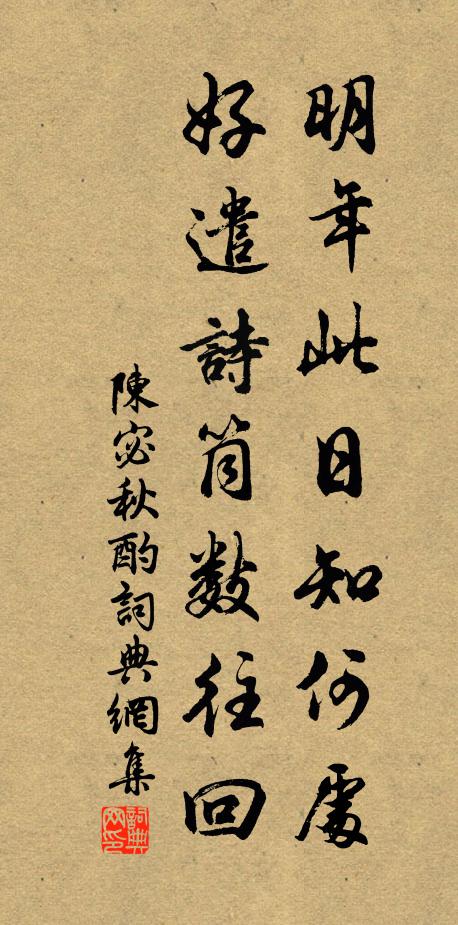 明年此日知何處
好遣詩筒数往回
陳宓秋酌詞典網集
詞典网印